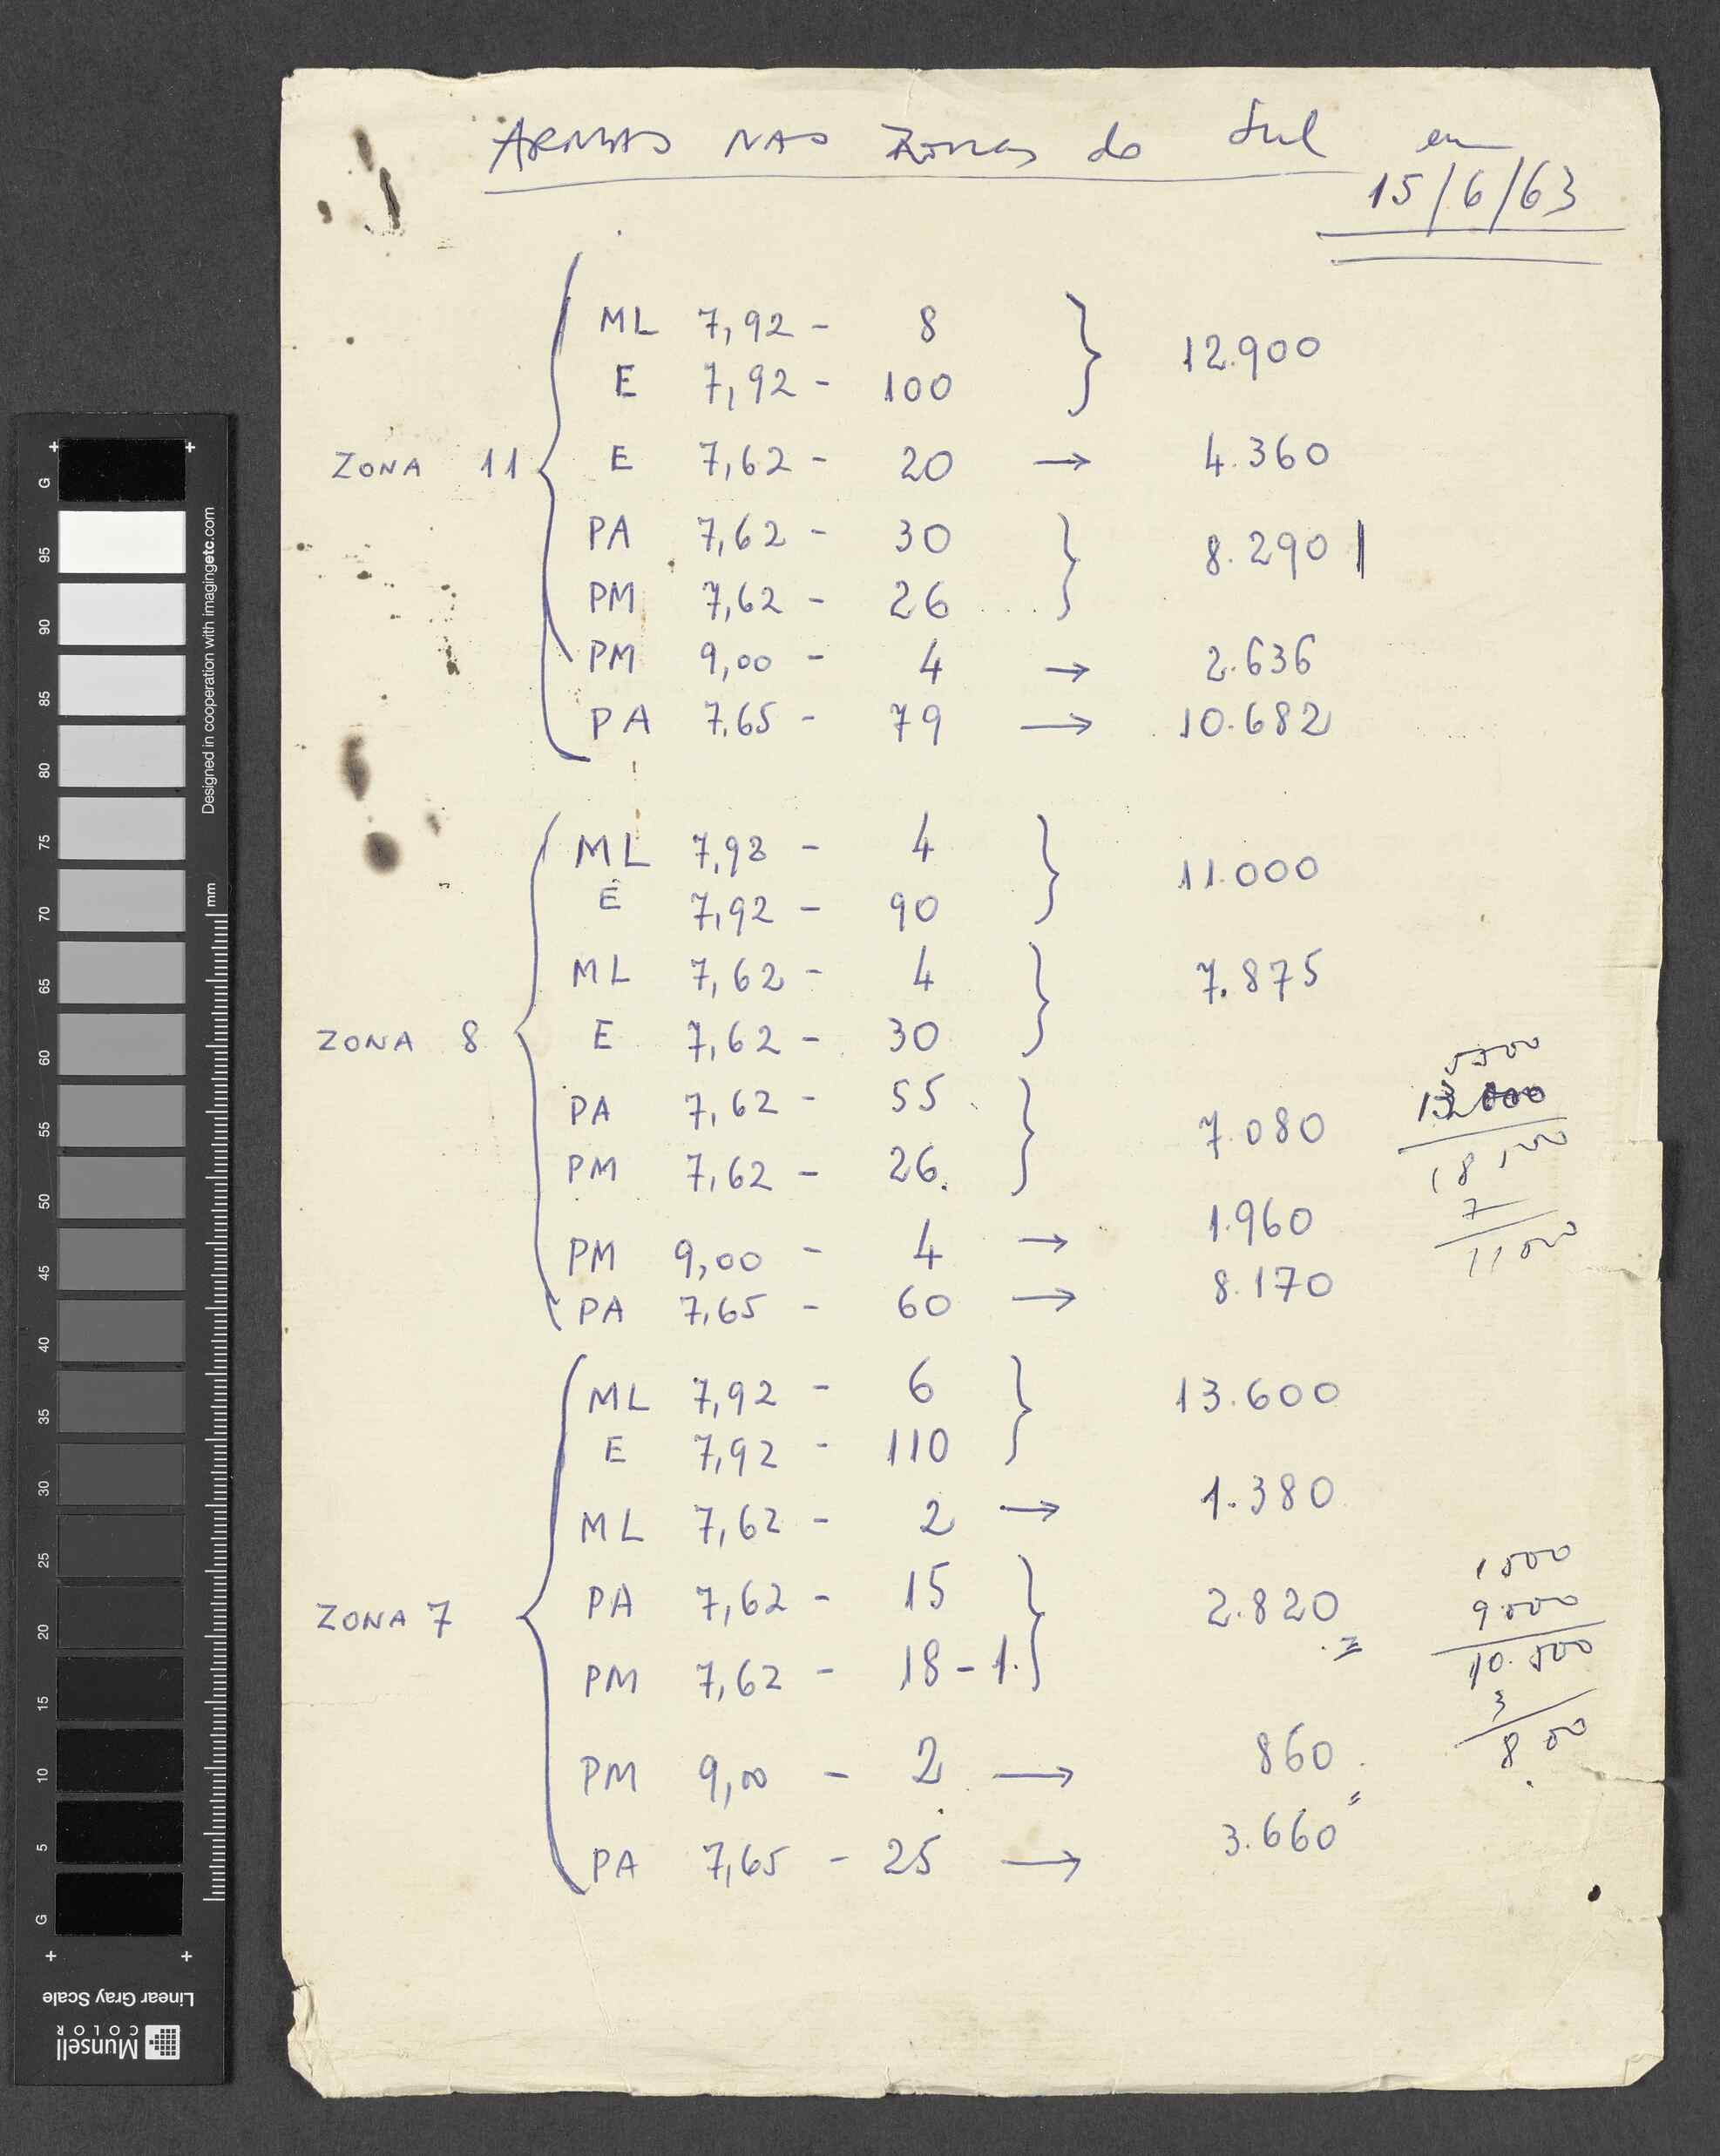 ARMAS NAS Zonas do Sul em
15/6/63
ML 7,92 - 8
12.900
E 7,92 - 100
ZONA 11 E 7,62 - 20 → 4.360
PA 7,62 - 30
8.290
PM 7,62 - 26
PM 9,00 - 4 → 2.636
PA 7.65 - 79 → 10.682
ML 7,92 - 4
11.000
E 7,92 - 90
ML 7,62 - 4
7.875
ZONA 8 E 7,62 - 30
PA 7,62 - 55
7.080
PM 7,62 - 26.
PM 9,00 - 4 → 1.960
PA 7,65 - 60 → 8.170
ML 7,92 - 6
13.600
E 7,92 - 110
ML 7,62 - 2 → 1.380
ZONA 7 PA 7,62 - 15
2.820
PM 7,62 - 18 - 1.
PM 9,00 - 2 → 860
PA 7,65 - 25 → 3.660
1500
9.000
10.500
3
G
95
90
85
80
75
70
65
60
55
50
45
40
35
30
25
20
15
10
5
G
Designed in cooperation with imagingetc.com
mm
Linear Gray Scale
Munsell
COLOR